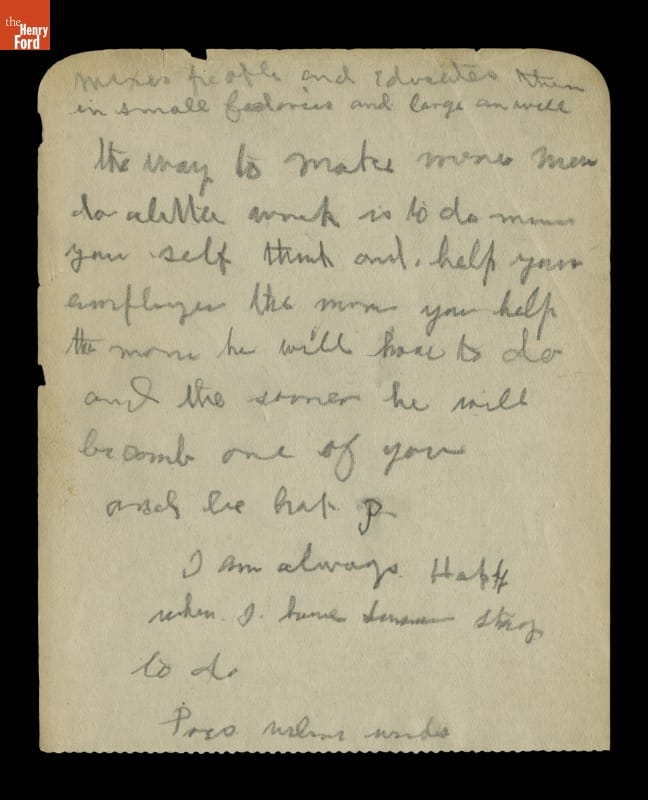 the
Henry
Ford
mixes people and Educates them
in small factories and large as well
the way to make more men
do a better work is to do more
your self think and help your
employer the more you help
the more he will have to do
and the sooner he will
becomb one of you
and be hap
I am always Happy
when I have some
to do